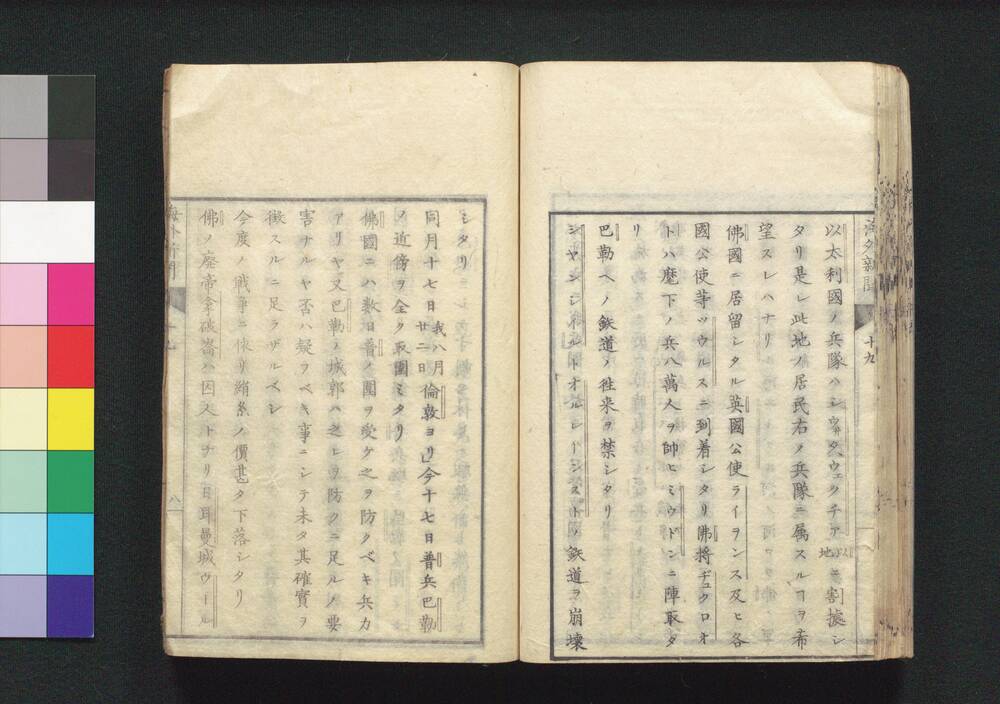 海外新聞
十九
以太利國ノ兵隊ハシウ井タウェクチア以地ニ割據シ
タリ是レ此地ノ居民右ノ兵隊ニ属スルヿヲ希
望スレハナリ
佛國ニ居留シタル英國公使ライヲンス及ヒ各
國公使等ツウルスニ到着シタリ佛将ヂュクロオ
トハ麾下ノ兵八萬人ヲ帥ヒミウドンニ陣取タ
リ
巴勒ヘノ鉄道ノ徃来ヲ禁シタリ
ノ鉄道ヲ崩壊
シタリ
同月十七日我八月廿二日倫敦ヨリ今十七日普兵巴勒
ノ近傍ヲ全ク取圍ミタリ
佛國ニハ数日普ノ圍ヲ受ケ之ヲ防クベキ兵力
アリヤ又巴勒ノ城郭ハ之レヲ防クニ足ルノ要
害ナルヤ否ハ疑フベキ事ニシテ未タ其確實ヲ
徴スルニ足ラザルベシ
今度ノ戦争ニ依リ絹糸ノ價甚タ下落シタリ
佛ノ廢帝拿破崙ハ囚人トナリ日耳曼城ウール
海外新聞
八